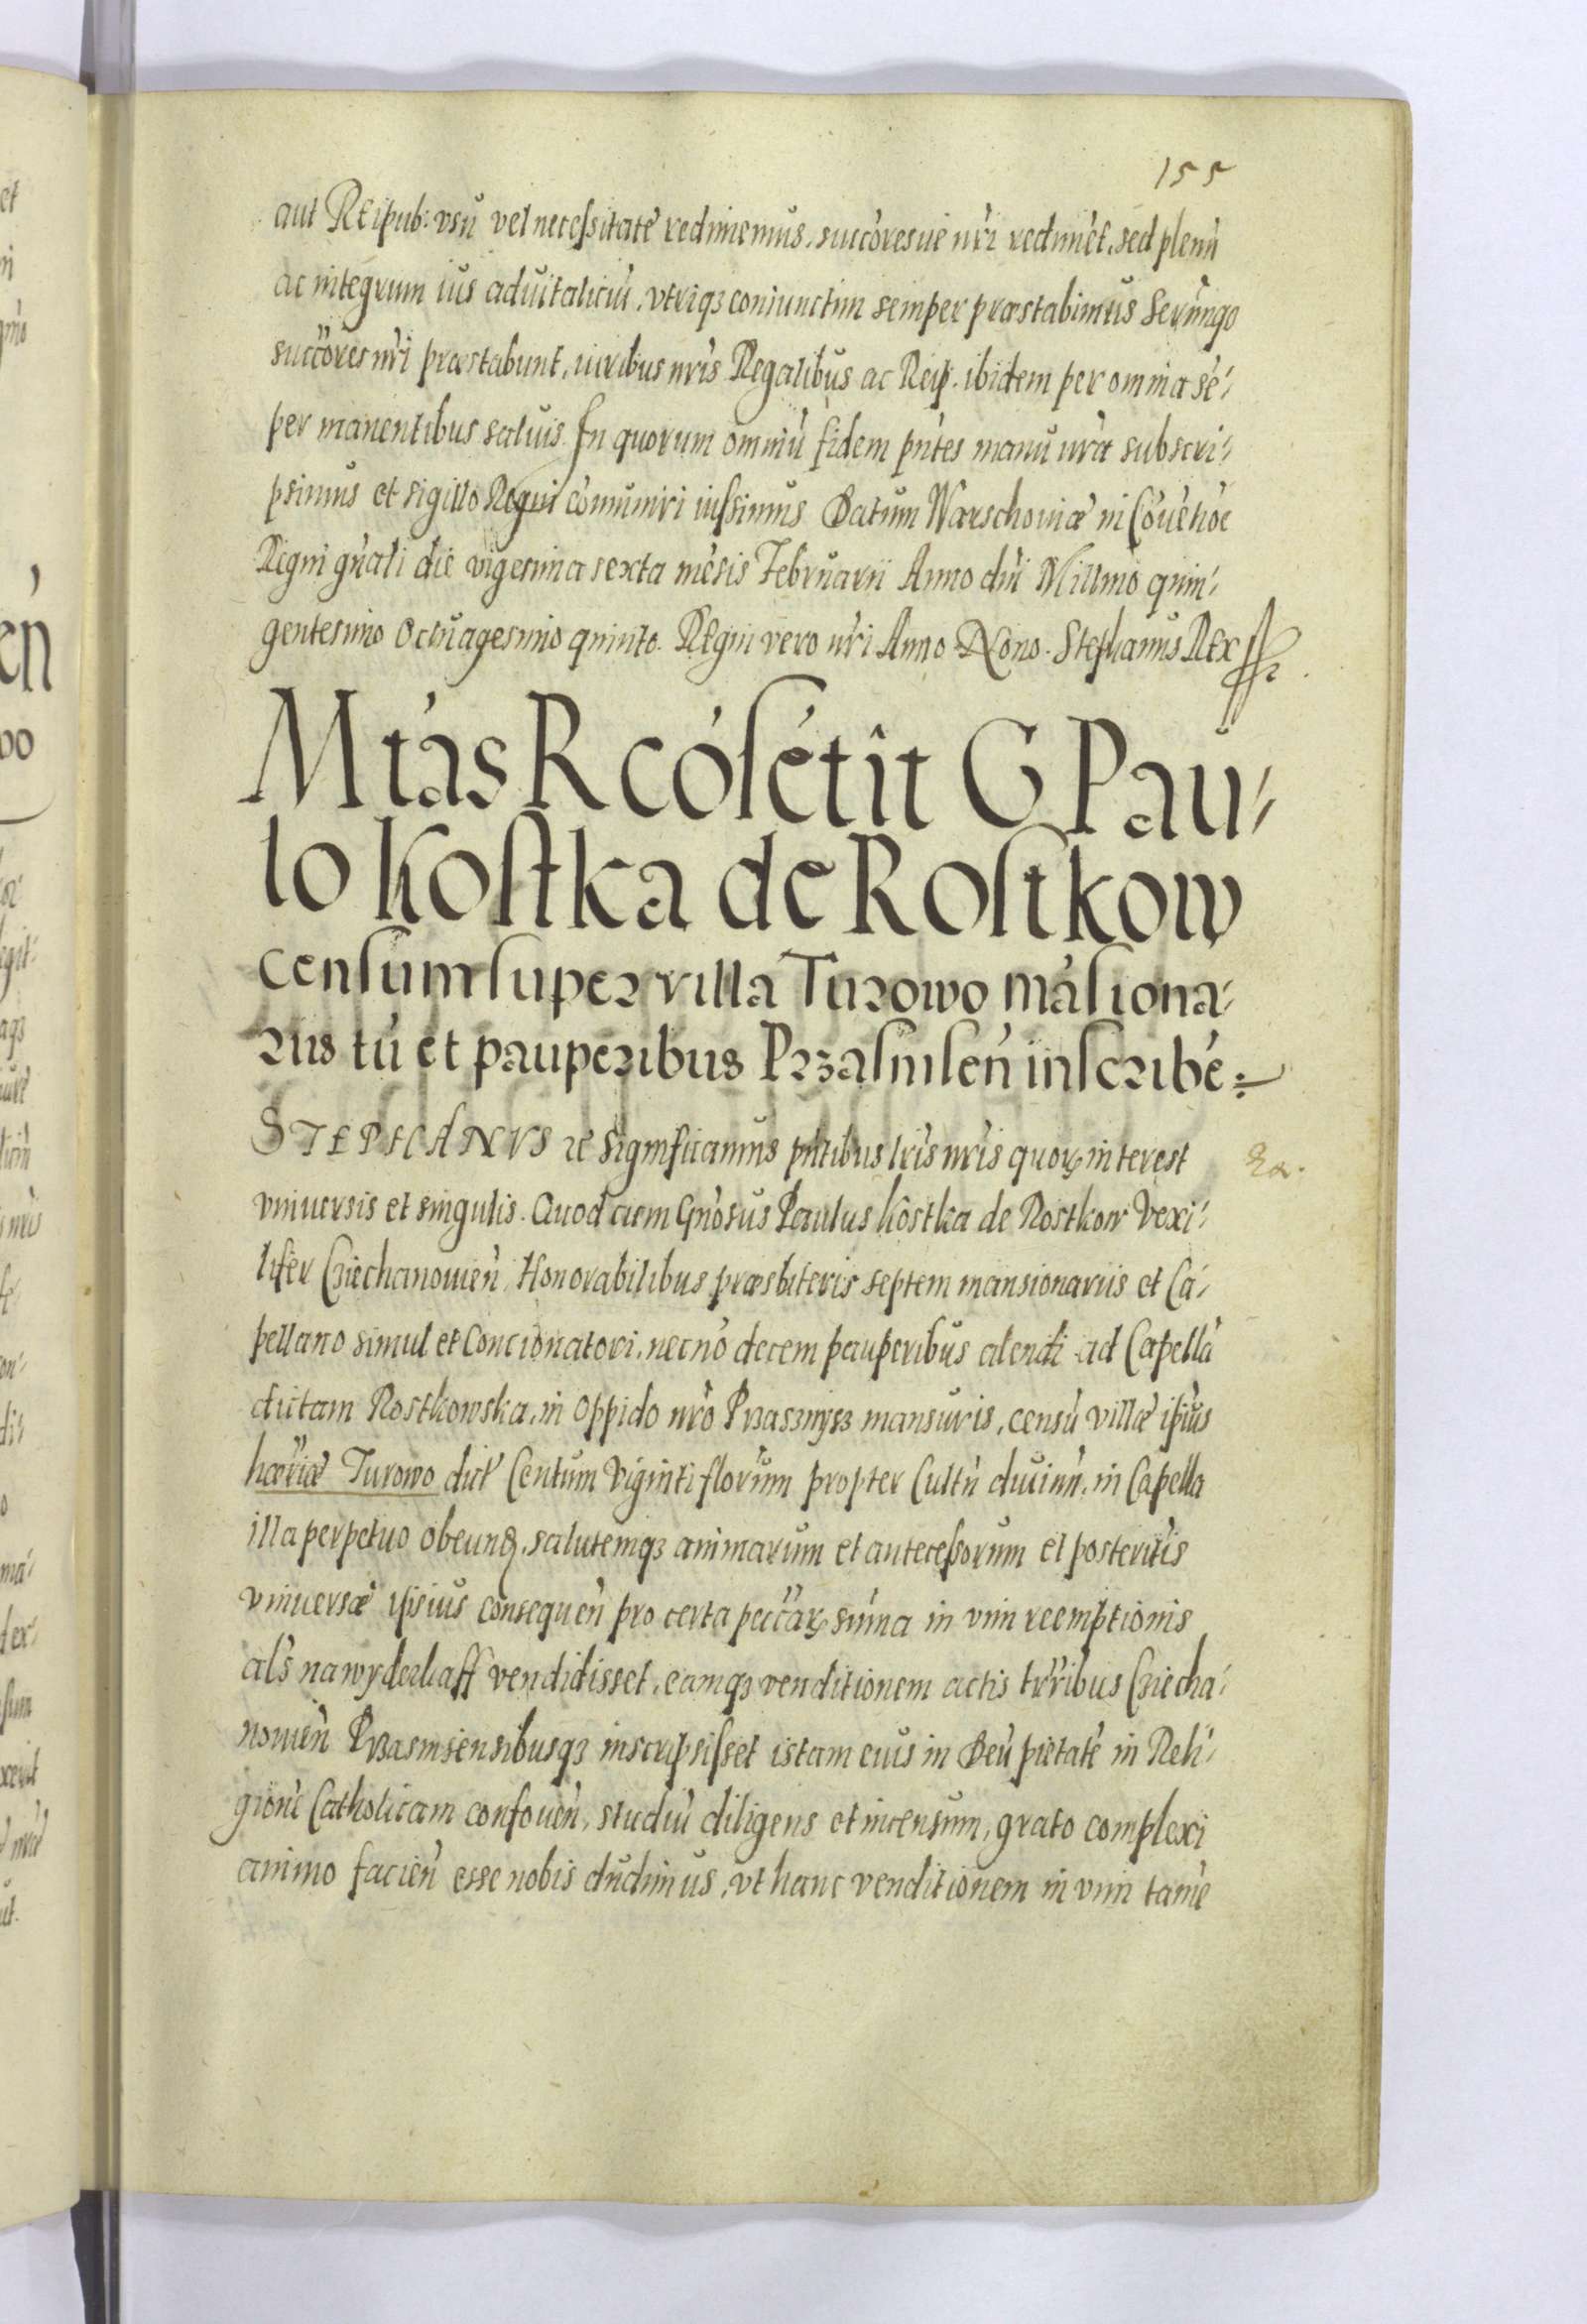 155
aut REipub: vsū vel necessitatē redimemus, succōresue nr̄i redimēt, sed plenū
ac integrum ius aduitaliciū, vtriqʒ coniunctim semper præstabimus Ser̄nīqʒ
succōres nr̄i præstabunt, iuribus nr̄is Regalibus ac Reip. ibidem per omnia sē-
per manentibus saluis. In quorum omniū fidem pn̄tes manu nr̄a subscri-
psimus et sigillo Regni cōmuniri iussimus Datum Warschouiæ in Cōuētiōe
Regni gn̄ali die vigesima sexta mēsis Februarii Anno dn̄i Millm̄o quin-
gentesimo Octuagesimo quinto. REgni vero nr̄i Anno Nono. Stephanus REx
Mtas R cōsētit G Pau-
lo Kostka de Rostkow
censum super villa Turowo māsiona-
riis tū et pauperibus Przasnisen̄ inscribē
STEPHANVS ꝛc Significamus pn̄tibus lr̄is nr̄is quorꝝ interest
vniuersis et singulis. Quod cum Gn̄osus Paulus Kostka de Rostkow Vexi-
lifer Cziechanouien̄, Honorabilibus præsbiteris septem mansionariis et Ca-
pellano simul et Concionatori, necnō decem pauperibus alendi ad Capellā
dictam Rostkowska, in Oppido nr̄o Przasznysz mansuris, censū villæ ip̄ius
hær̄iæ Turowo dict̄ Centum Viginti florīum propter Cultū diuinū, in Capella
illa perpetuo obeund, salutemqʒ animarum et antecessorum et posteritīs
vniuersæ ipsius consequen̄ pro certa peccārꝝ sūma in vim reemptionis
als̄ na wyderkaff vendidisset, eamqʒ venditionem actis tr̄ribus Cziecha-
nouien̄ Przasnsensibusqʒ inscripsisset istam eius in Deū pietatē in Reli-
gionē Catholicam confouen̄, studiū diligens et incensum, grato complexi
animo facien̄ esse nobis duximus, vt hanc venditionem in vim tamē